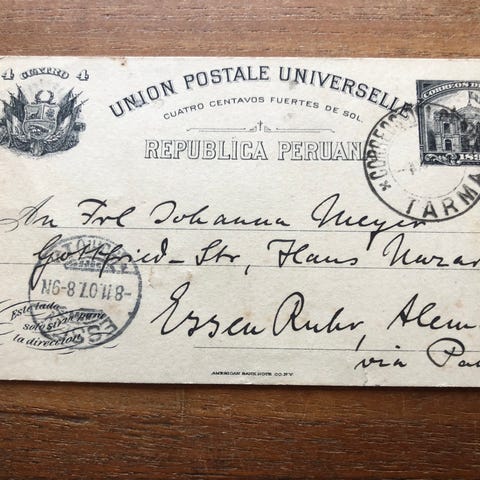 4 CUATRO 4
UNION POSTALE UNIVERSELLE
CUATRO CENTAVOS FUERTES DE SOL.
REPUBLICA PERUANA
CORREOS DE
TARMA
An Frl Johanna Meyer
Gottfried-Str, Haus Nazar
Essen Ruhr, Alem
via Pa
-8.11.07.8-9N
Este lado
solo sirve para
la direccion
AMERICAN BANK NOTE CO. N.Y.